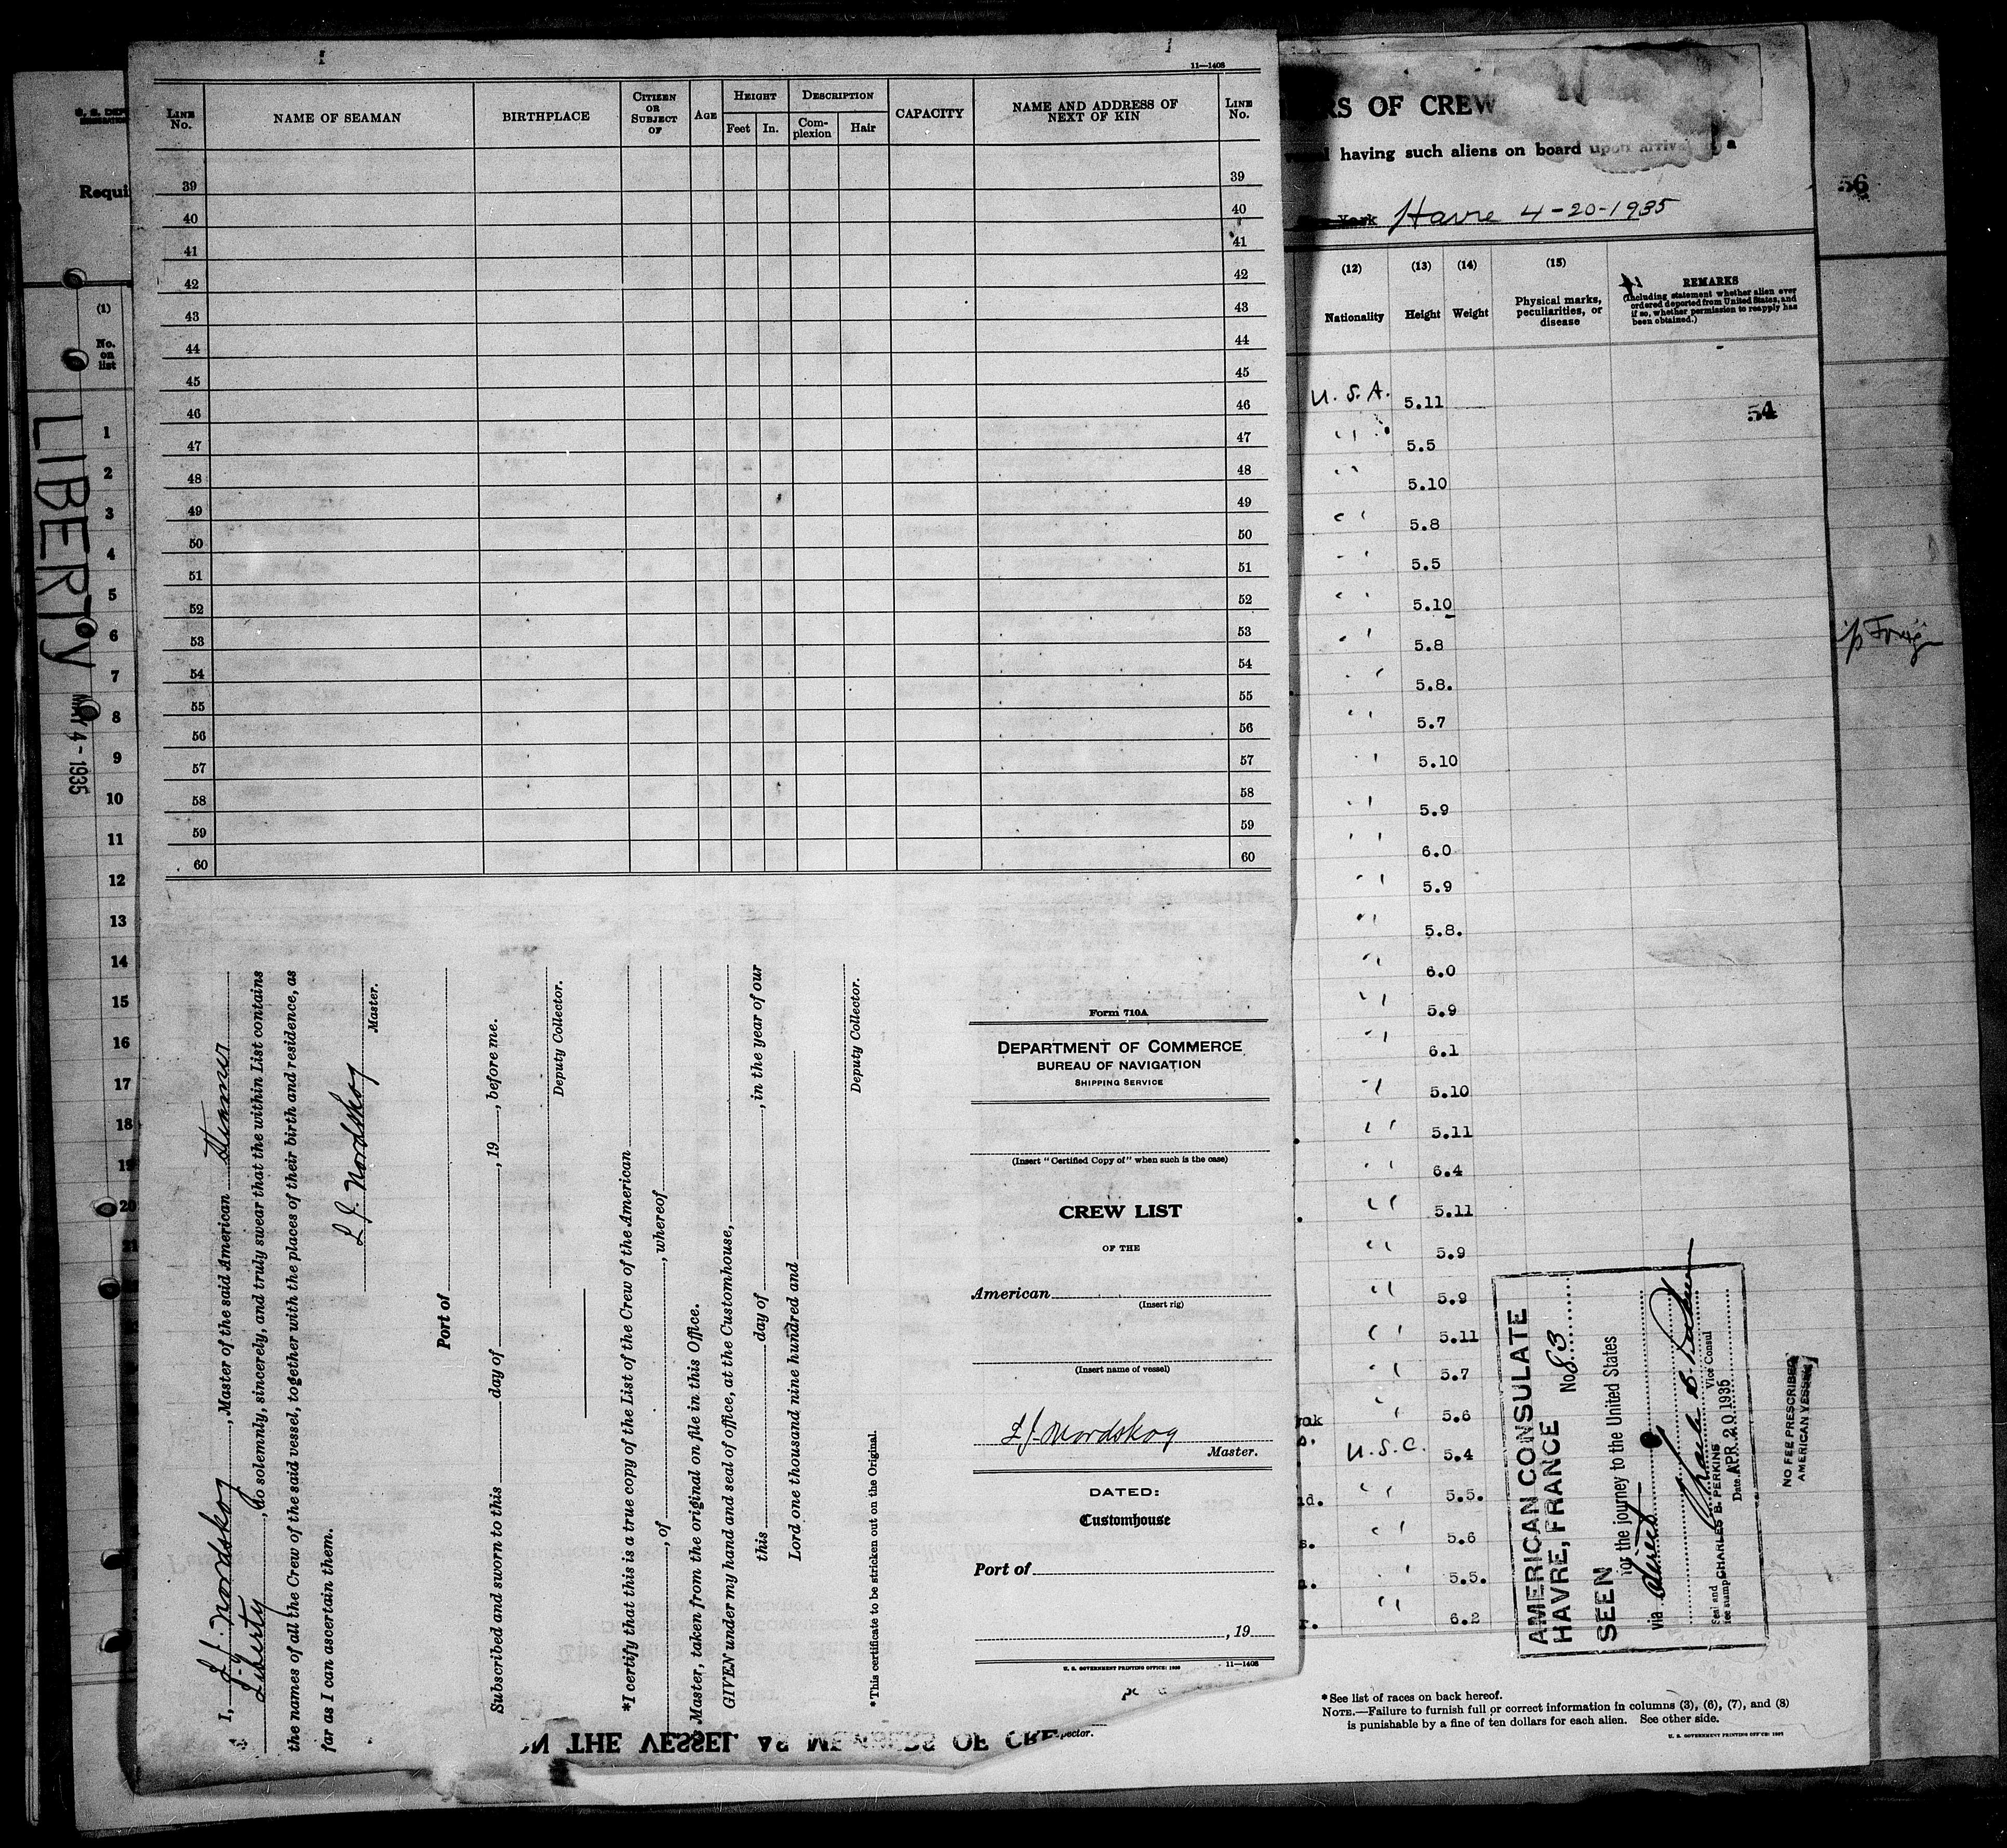 1 1
11—1408
LINE No. NAME OF SEAMAN BIRTHPLACE CITIZEN OR SUBJECT OF AGE HEIGHT Feet In. DESCRIPTION Complexion Hair CAPACITY NAME AND ADDRESS OF NEXT OF KIN LINE No.
39 39
40 40
41 41
42 42
43 43
44 44
45 45
46 46
47 47
48 48
49 49
50 50
51 51
52 52
53 53
54 54
55 55
56 56
57 57
58 58
59 59
60 60
I, L. J. Nordskog, Master of the said American Steamer
Liberty, do solemnly, sincerely, and truly swear that the within List contains
the names of all the Crew of the said vessel, together with the places of their birth and residence, as
far as I can ascertain them.
L J. Nordskog
Master.
Port of
Subscribed and sworn to this day of , 19 , before me.
Deputy Collector.
*I certify that this is a true copy of the List of the Crew of the American
, of , whereof
Master, taken from the original on file in this Office.
GIVEN under my hand and seal of office, at the Customhouse,
this day of , in the year of our
Lord one thousand nine hundred and
Deputy Collector.
*This certificate to be stricken out on the Original.
Form 710A
DEPARTMENT OF COMMERCE
BUREAU OF NAVIGATION
SHIPPING SERVICE
(Insert "Certified Copy of" when such is the case)
CREW LIST
OF THE
American
(Insert rig)
(Insert name of vessel)
L J. Nordskog
Master.
DATED:
Customhouse
Port of
, 19
U. S. GOVERNMENT PRINTING OFFICE: 11—1408
THE VESSEL AS MEMBERS OF CRE
pector.
U. S. DEP
Requi
(1)
No. on list
LIBERTY
MAY 4 - 1935
1
2
3
4
5
6
7
8
9
10
11
12
13
14
15
16
17
18
19
20
21
RS OF CREW
having such aliens on board upon arrival a
York Havre 4-20-1935
(12) (13) (14) (15)
Nationality Height Weight Physical marks, peculiarities, or disease
REMARKS
(Including statement whether alien ever
ordered deported from United States, and
if so, whether permission to reapply has
been obtained.)
U.S.A. 5.11 54
" 5.5
" 5.10
" 5.8
" 5.5
" 5.10
" 5.8
" 5.8.
" 5.7
" 5.10
" 5.9
" 6.0
" 5.9
" 5.8.
" 6.0
" 5.9
" 6.1
" 5.10
" 5.11
" 6.4
" 5.11
" 5.9
" 5.9
" 5.11
" 5.7
" 5.6
U.S.C. 5.4
" 5.5.
" 5.6
" 5.5.
" 6.2
AMERICAN CONSULATE
HAVRE, FRANCE No. 83
SEEN
for the journey to the United States
via direct
Charles B. Perkins
Vice Consul
Seal and fee stamp CHARLES B. PERKINS
Date APR 20 1935
NO FEE PRESCRIBED
AMERICAN VESSEL
* See list of races on back hereof.
NOTE.—Failure to furnish full or correct information in columns (3), (6), (7), and (8)
is punishable by a fine of ten dollars for each alien. See other side.
U. S. GOVERNMENT PRINTING OFFICE:
56